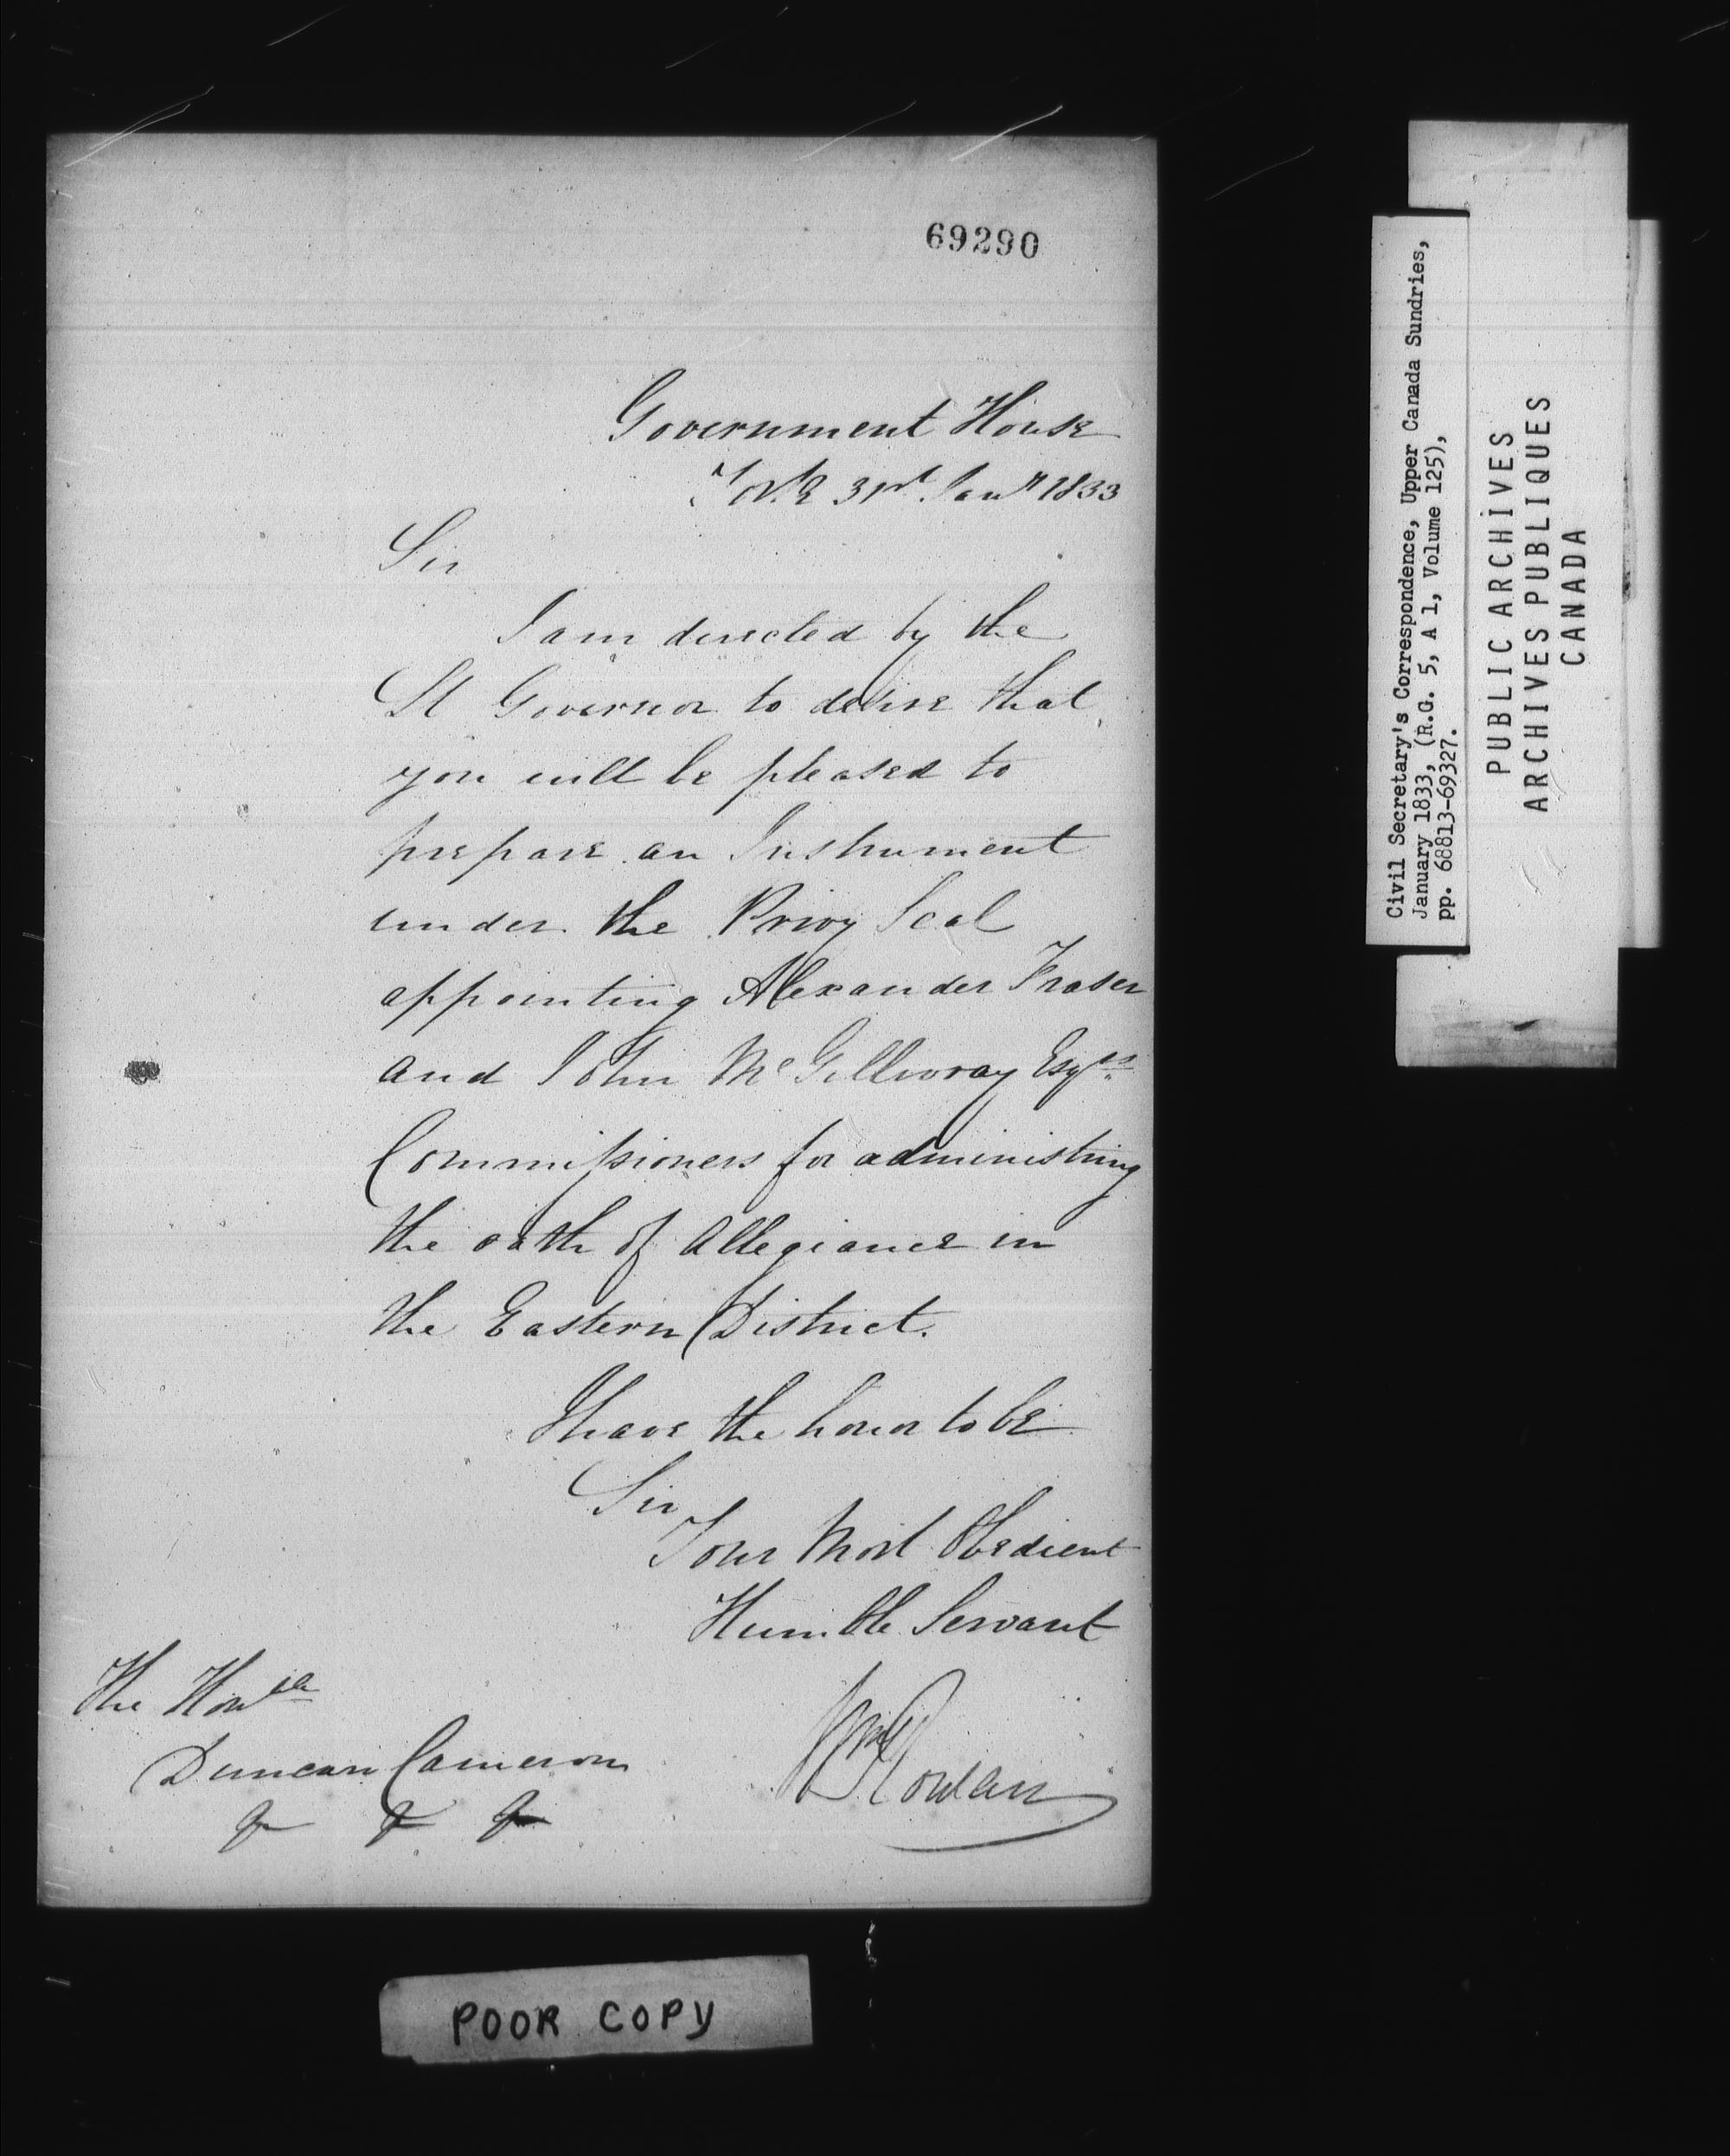 69290
Government House
York 31st Jany 1833
Sir
I am directed by the
Lt Governor to desire that
you will be pleased to
prepare an Instrument
under the Privy Seal
appointing Alexander Fraser
and John McGillivray Esqrs
Commissioners for administring
the oath of Allegiance in
the Eastern District.
I have the honor to be
Sir
Your Most Obedient
Humble Servant
Wm Rowan
The Honble
Duncan Cameron
& & &
POOR COPY
Civil Secretary's Correspondence, Upper Canada Sundries,
January 1833, (R.G. 5, A 1, Volume 125),
pp. 68813-69327.
PUBLIC ARCHIVES
ARCHIVES PUBLIQUES
CANADA